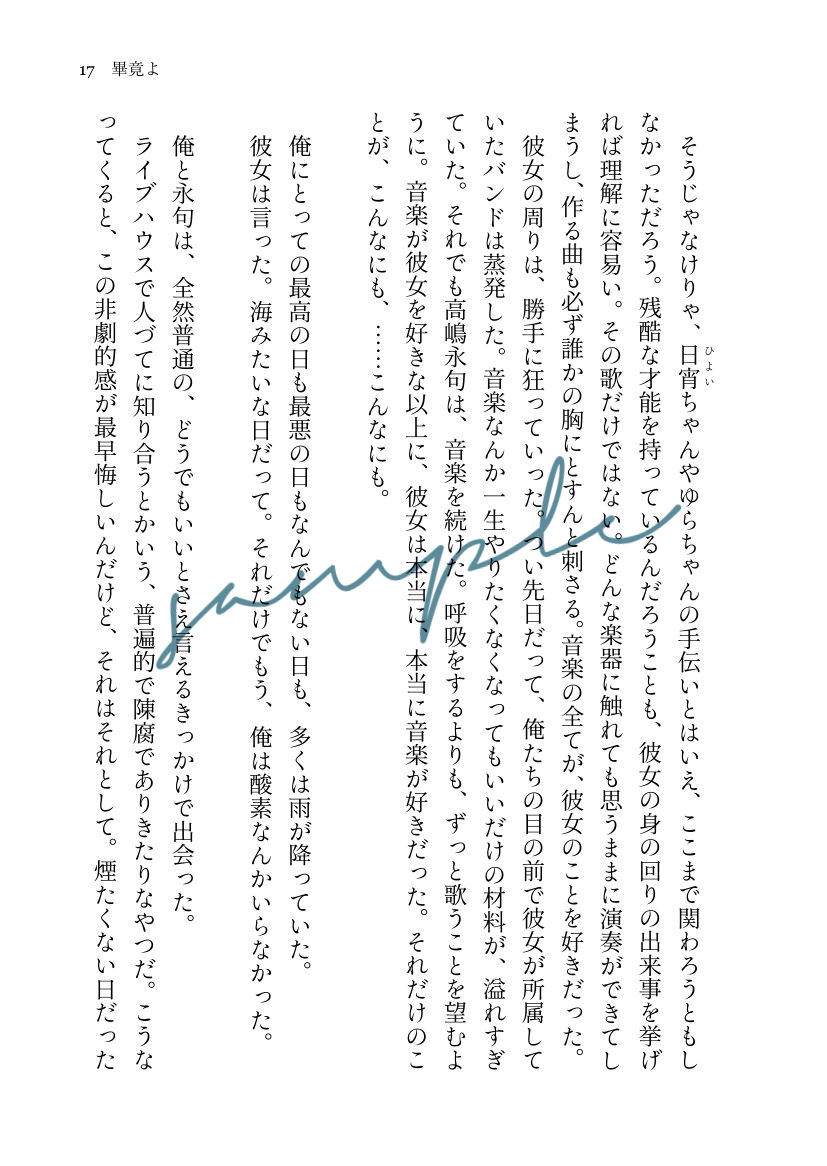 17 畢竟よ
そうじゃなけりゃ、日宵ちゃんやゆらちゃんの手伝いとはいえ、ここまで関わろうともし
ひよい
なかっただろう。残酷な才能を持っているんだろうことも、彼女の身の回りの出来事を挙げ
れば理解に容易い。その歌だけではない。どんな楽器に触れても思うままに演奏ができてし
まうし、作る曲も必ず誰かの胸にとすんと刺さる。音楽の全てが、彼女のことを好きだった。
彼女の周りは、勝手に狂っていった。つい先日だって、俺たちの目の前で彼女が所属して
いたバンドは蒸発した。音楽なんか一生やりたくなくなってもいいだけの材料が、溢れすぎ
ていた。それでも高嶋永句は、音楽を続けた。呼吸をするよりも、ずっと歌うことを望むよ
うに。音楽が彼女を好きな以上に、彼女は本当に、本当に音楽が好きだった。それだけのこ
とが、こんなにも、……こんなにも。
俺にとっての最高の日も最悪の日もなんでもない日も、多くは雨が降っていた。
彼女は言った。海みたいな日だって。それだけでもう、俺は酸素なんかいらなかった。
俺と永句は、全然普通の、どうでもいいとさえ言えるきっかけで出会った。
ライブハウスで人づてに知り合うとかいう、普遍的で陳腐でありきたりなやつだ。こうな
ってくると、この非劇的感が最早悔しいんだけど、それはそれとして。煙たくない日だった
sample